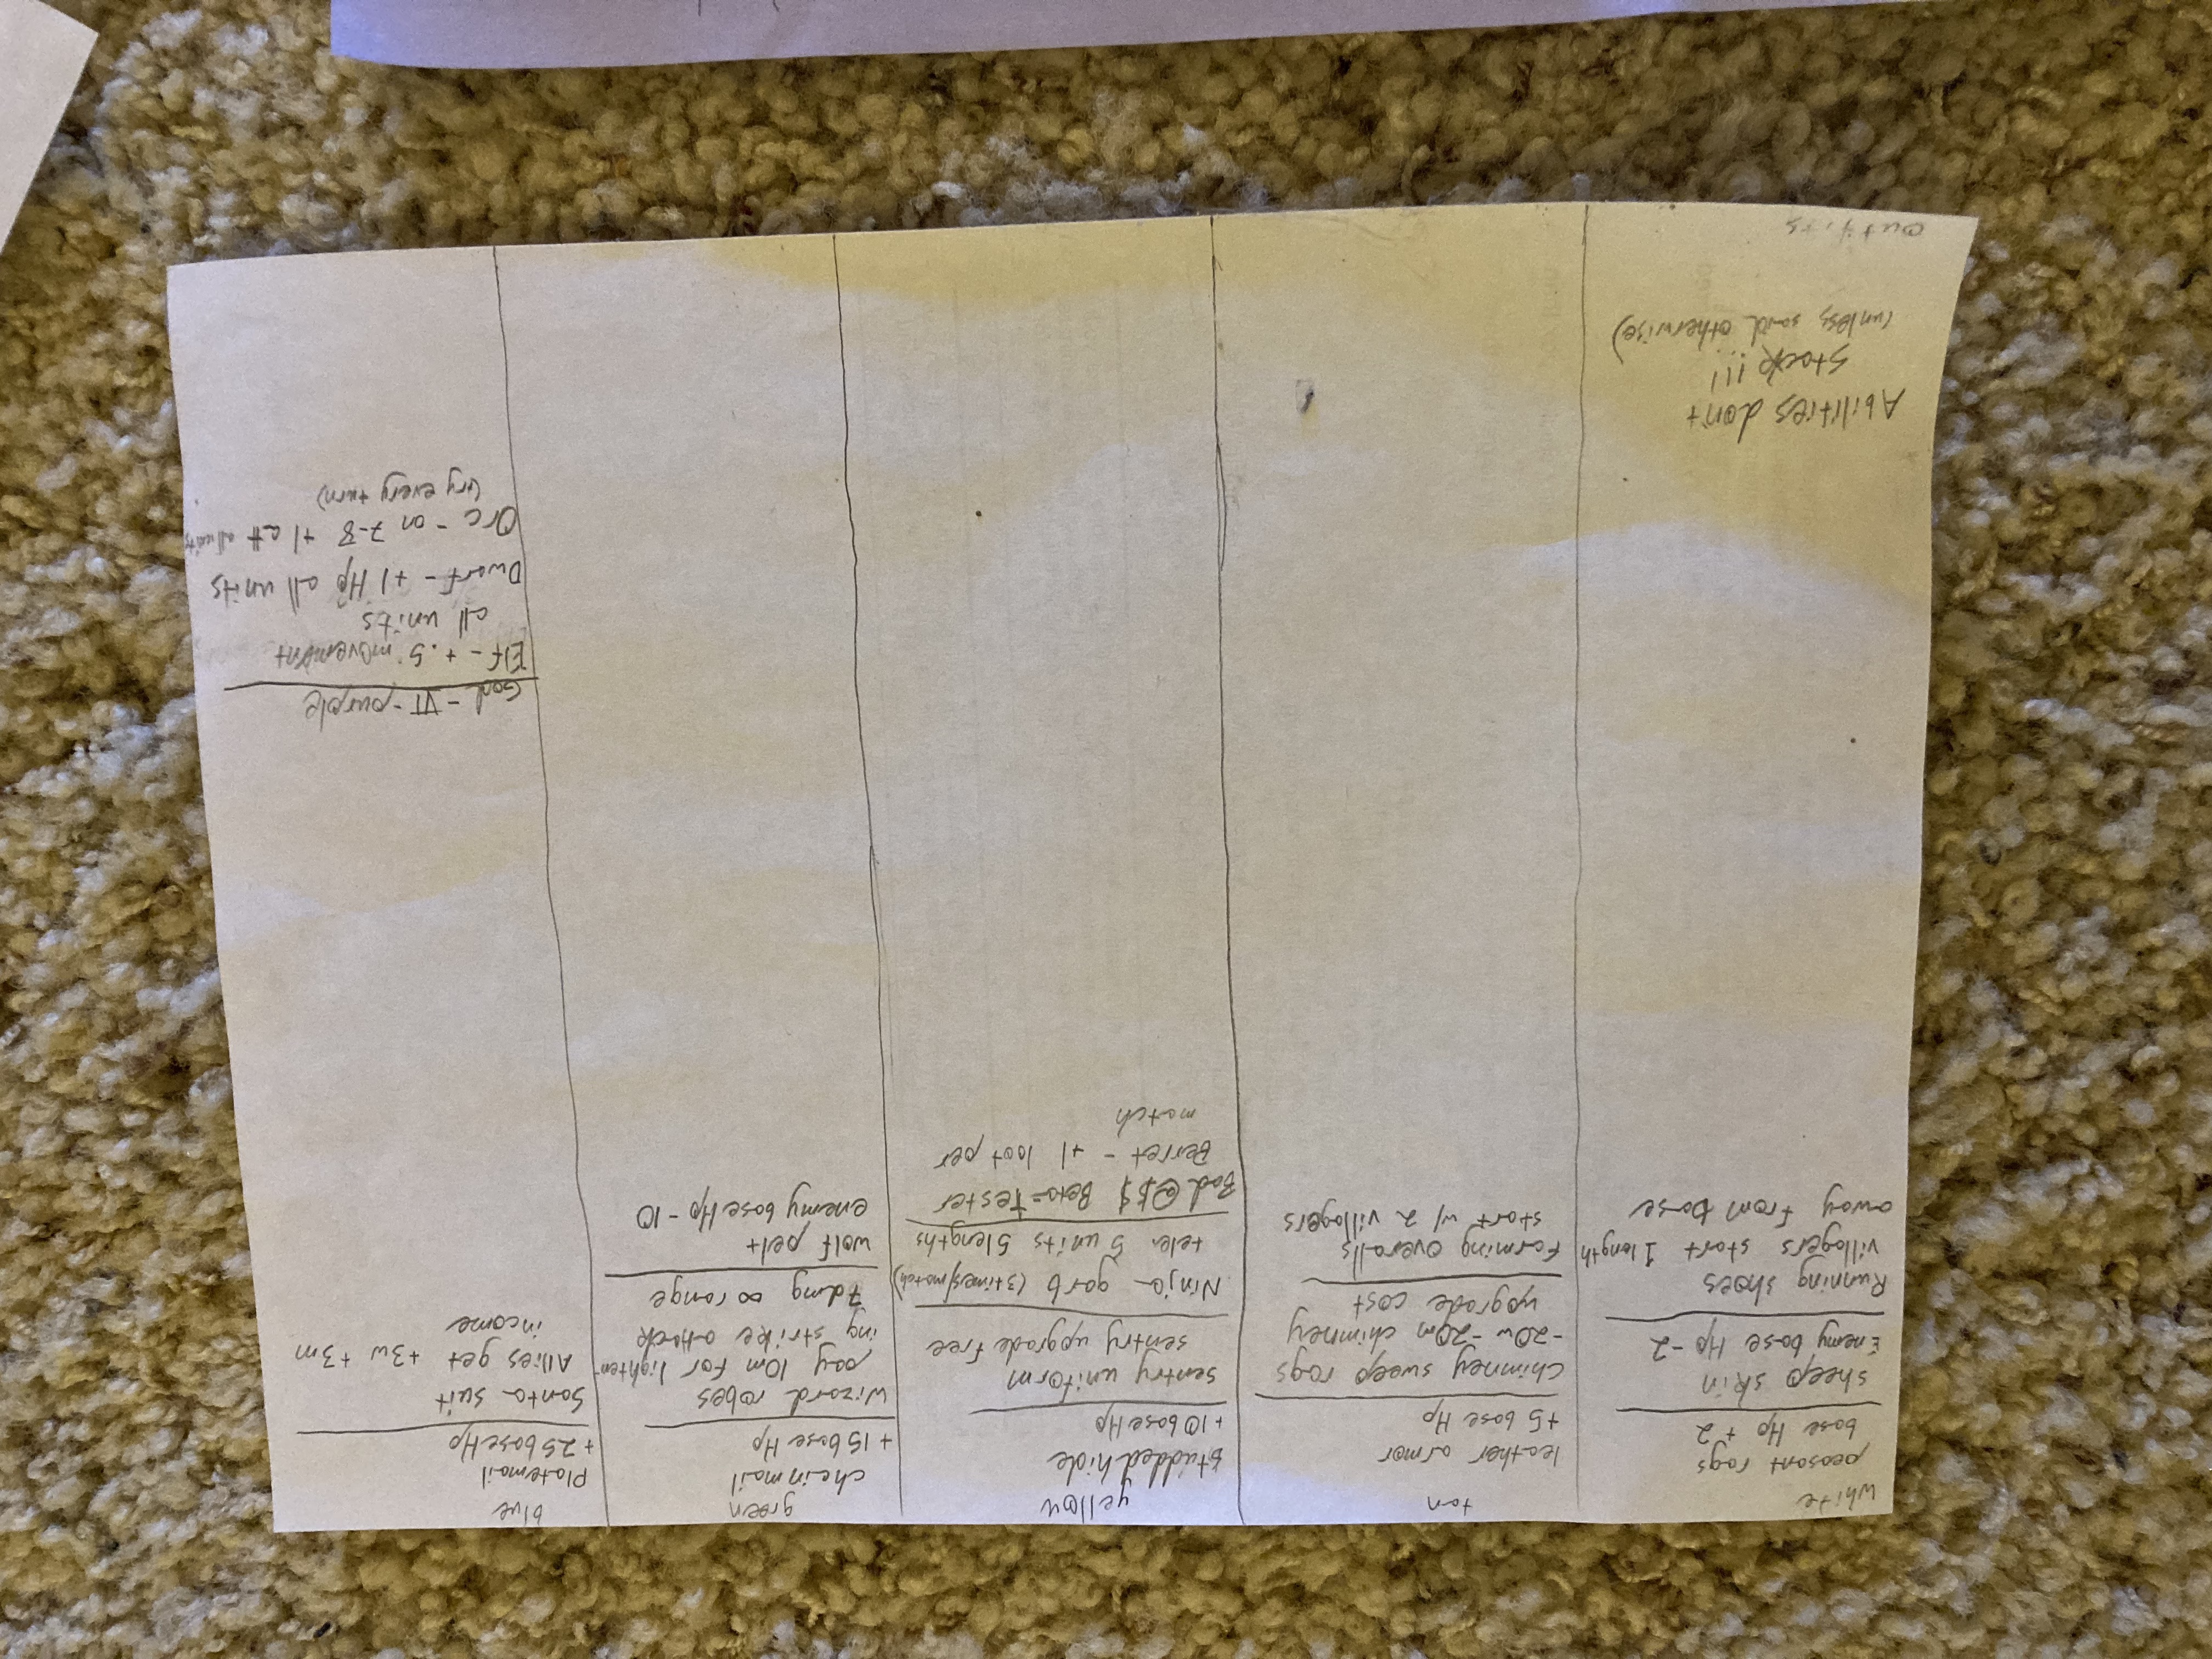 white
peasant rags
base Hp +2
sheep skin
Enemy base Hp -2
Running shoes
villagers start 1 length
away from base
Abilities don't
stack!!!
(unless said otherwise)
outfits
tan
leather armor
+5 base Hp
Chimney sweep rags
-20w -20m chimney
upgrade cost
Farming overalls
start w/ 2 villagers
yellow
studded hide
+10 base Hp
sentry uniform
sentry upgrade free
Ninja garb (3times/match)
tele 5 units 5 lengths
Bad @$$ Beta=Tester
Berret - +1 loot per
match
green
chein mail
+15 base Hp
Wizard robes
pay 10m For lighten
ing strike attack
7dmg ∞ range
wolf pelt
enemy base Hp -10
blue
Platemail
+25 base Hp
Santa suit
Allies get +3w +3m
income
God - VI - purple
Elf - +.5 movemnt
all units
Dwarf - +1 Hp all units
Orc - on 7-8 +1 att all units
(try every turn)